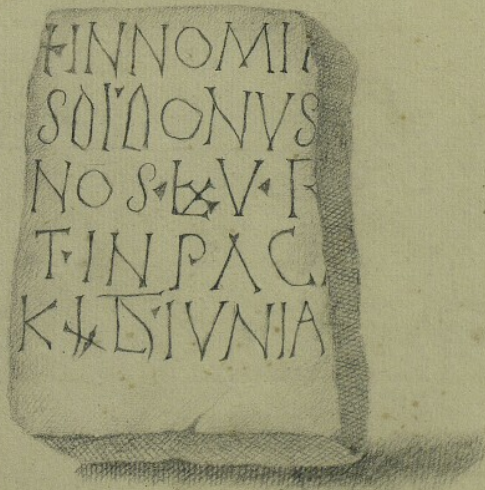 +INNOMI
SDI·DONVS
NOS·LXV·R
T·IN PAC
IVNIA